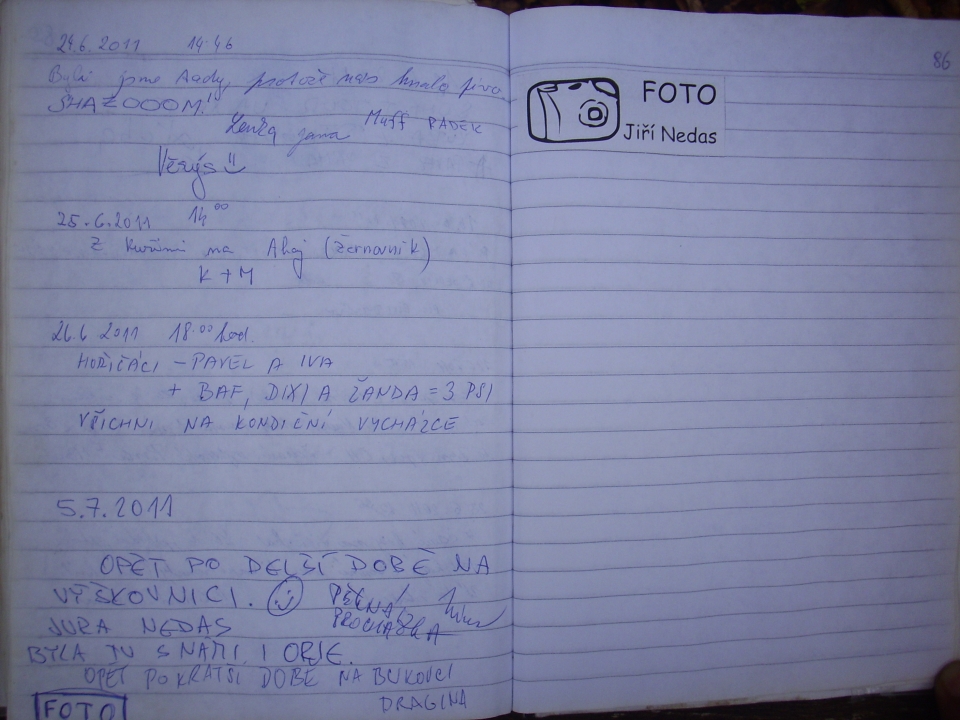 24.6.2011 14.46
Byli jsme tady, protože nás hnala
SHAZOOOM!
Lenka Jana Muff RADEK
Věrýs
25.6.2011 14⁰⁰
z Kuřimi na Ahoj (Žernovník)
K + M
26.6 2011 18.⁰⁰ hod.
HOŘIČÁCI - PAVEL A IVA
+ BAF, DIXI A ŽANDA = 3 PSI
VŠICHNI NA KONDIČNÍ VYCHÁZCE
5.7.2011
OPĚT PO DELŠÍ DOBĚ NA
VÝŠKOVNICI. PĚKNÁ
PROCHÁZKA
JURA NEDAS
BYLA TU S NÁMI I
OPĚT PO KRATŠÍ DOBĚ NA BUKOVCI
DRAGINA
FOTO
86
FOTO
Jiří Nedas